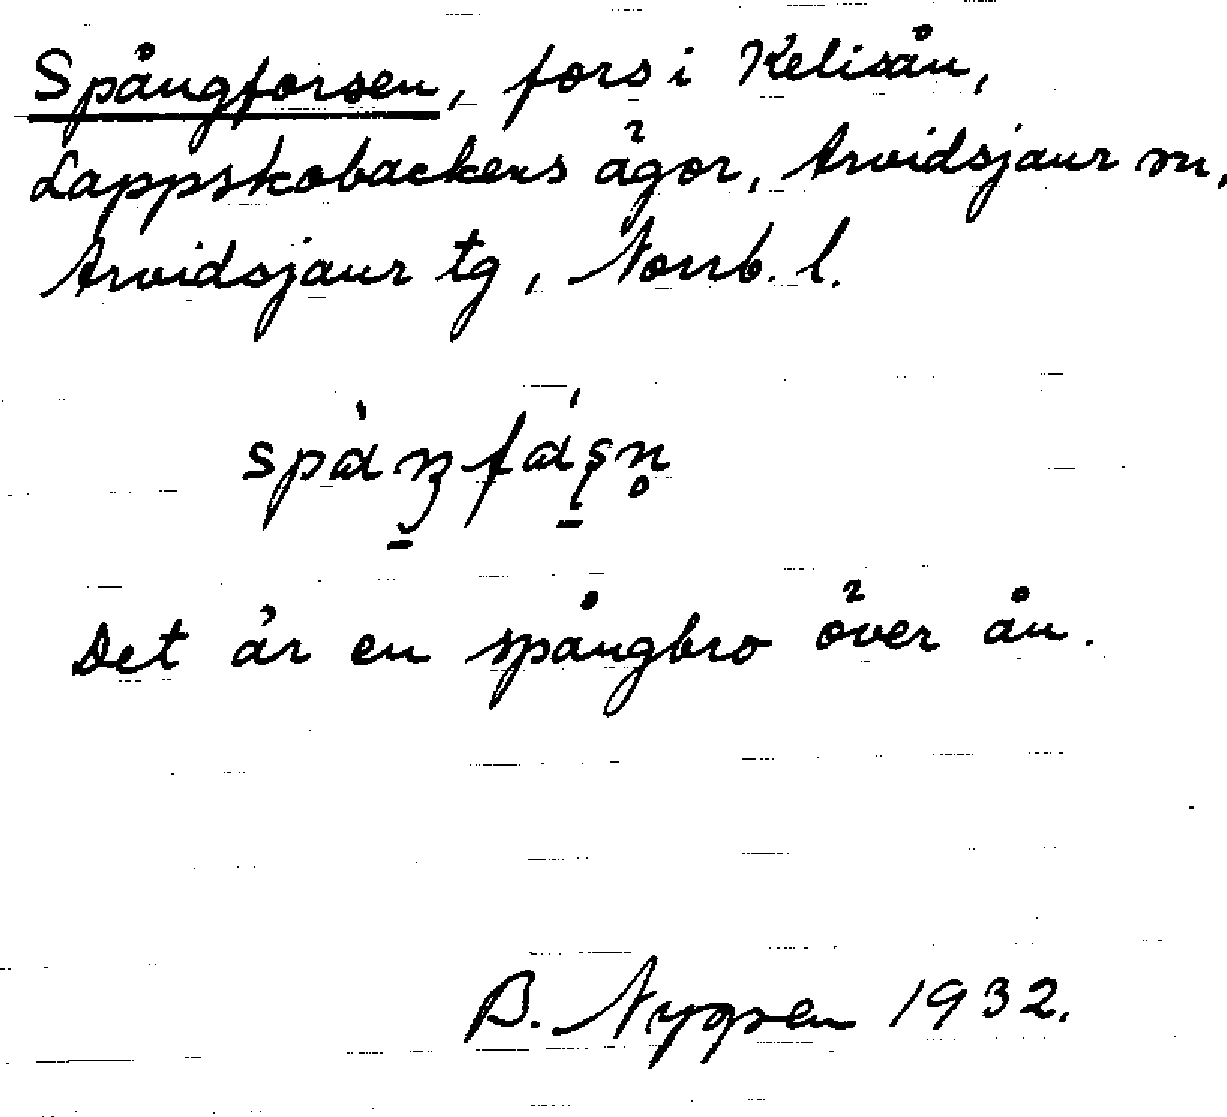 Spångforsen, fors i Kelisån,
Lappskobackens ägor, Arvidsjaur sn,
Arvidsjaur tg, Norrb. l.
Det är en spångbro över ån.
B. Nygren 1932.